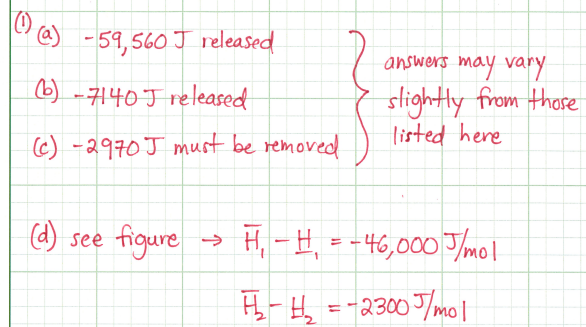 (1) (a) -59,560 J released
(b) -7140 J released
(c) -2970 J must be removed
answers may vary
slightly from those
listed here
(d) see figure → H̅₁ - H̲₁ = -46,000 J/mol
H̅₂ - H̲₂ = -2300 J/mol